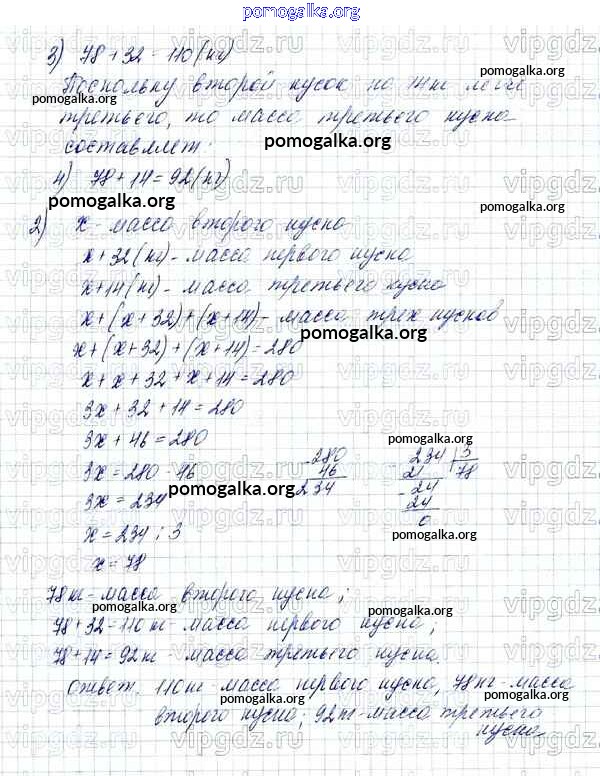 pomogalka.org
3) 78 + 32 = 110 (кг)
Поскольку второй кусок на 14 кг легче
третьего, то масса третьего куска
составляет:
pomogalka.org
4) 78 + 14 = 92 (кг)
pomogalka.org
2) x - масса второго куска
x + 32 (кг) - масса первого куска
x + 14 (кг) - масса третьего куска
x + (x + 32) + (x + 14) - масса трех кусков
pomogalka.org
x + (x + 32) + (x + 14) = 280
x + x + 32 + x + 14 = 280
3x + 32 + 14 = 280
3x + 46 = 280
pomogalka.org
3x = 280 - 46
280
- 46
234
234 | 3
21 78
- 24
24
0
3x = 234
pomogalka.org
x = 234 : 3
pomogalka.org
x = 78
78 кг - масса второго куска;
pomogalka.org
pomogalka.org
78 + 32 = 110 кг - масса первого куска;
78 + 14 = 92 кг масса третьего куска.
pomogalka.org
Ответ. 110 кг - масса первого куска, 78 кг - масса
pomogalka.org
второго куска; 92 кг - масса третьего
куска.
pomogalka.org
vipgdz.ru